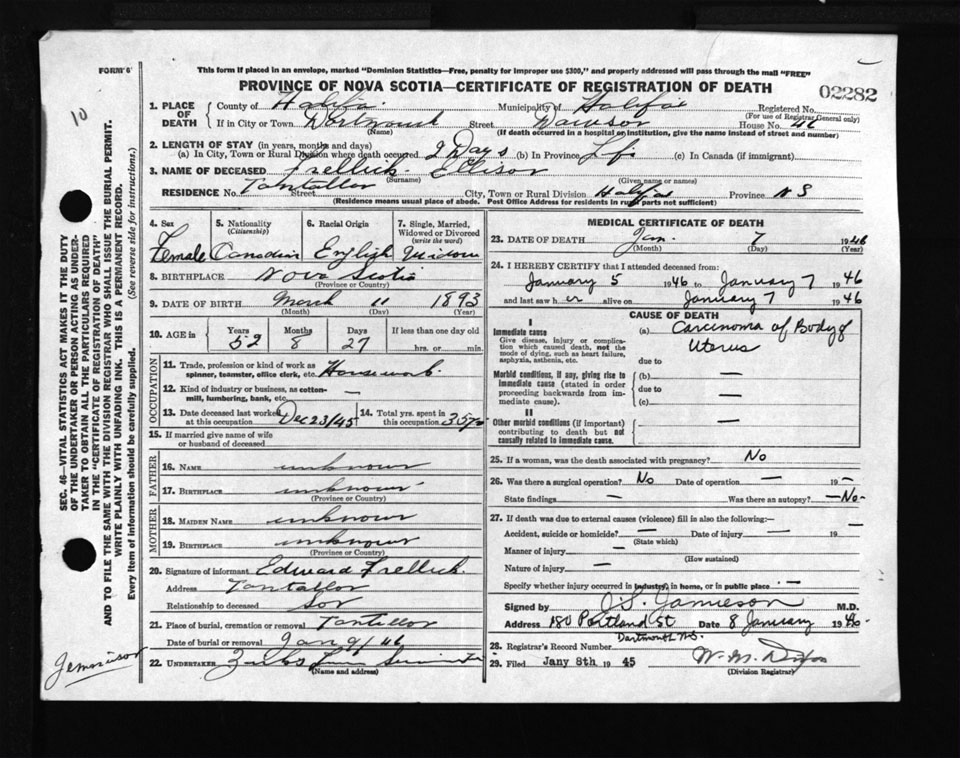 FORM 6
This form if placed in an envelope, marked "Dominion Statistics—Free, penalty for improper use $300," and properly addressed will pass through the mail "FREE"
PROVINCE OF NOVA SCOTIA—CERTIFICATE OF REGISTRATION OF DEATH
02282
10
1. PLACE OF DEATH
County of Halifax Municipality of Halifax Registered No.
(For use of Registrar General only)
If in City or Town Dartmouth Street Dawson House No. 46
(Name) (If death occurred in a hospital or institution, give the name instead of street and number)
2. LENGTH OF STAY (in years, months and days)
(a) In City, Town or Rural Division where death occurred 2 Days (b) In Province Life (c) In Canada (if immigrant)
3. NAME OF DECEASED Frellick Ellison
(Surname) (Given name or names)
RESIDENCE No. Tantallon Street City, Town or Rural Division Halifax Province N S
(Residence means usual place of abode. Post Office Address for residents in rural parts not sufficient)
4. Sex 5. Nationality (Citizenship) 6. Racial Origin 7. Single, Married, Widowed or Divorced (write the word)
Female Canadian English Widow
8. BIRTHPLACE Nova Scotia
(Province or Country)
9. DATE OF BIRTH March 11 1893
(Month) (Day) (Year)
10. AGE in Years Months Days If less than one day old
52 8 27 hrs. or min.
OCCUPATION
11. Trade, profession or kind of work as spinner, teamster, office clerk, etc. Housework
12. Kind of industry or business, as cotton-mill, lumbering, bank, etc. —
13. Date deceased last worked at this occupation Dec 23/45 14. Total yrs. spent in this occupation 35 yrs
15. If married give name of wife or husband of deceased
FATHER
16. NAME unknown
17. BIRTHPLACE unknown
(Province or Country)
MOTHER
18. MAIDEN NAME unknown
19. BIRTHPLACE unknown
(Province or Country)
20. Signature of informant Edward Frellick
Address Tantallon
Relationship to deceased Son
21. Place of burial, cremation or removal Tantallon
Date of burial or removal Jan 9/46
22. UNDERTAKER
(Name and address)
MEDICAL CERTIFICATE OF DEATH
23. DATE OF DEATH Jan. 7 1946
(Month) (Day)
24. I HEREBY CERTIFY that I attended deceased from:
January 5 1946 to January 7 1946
and last saw her alive on January 7 1946
CAUSE OF DEATH
I
Immediate cause (a) Carcinoma of Body of Uterus
Give disease, injury or complication which caused death, not the mode of dying, such as heart failure, asphyxia, asthenia, etc.
due to
Morbid conditions, if any, giving rise to immediate cause (stated in order proceeding backwards from immediate cause).
(b) —
due to
(c) —
II
Other morbid conditions (if important) contributing to death but not causally related to immediate cause. —
25. If a woman, was the death associated with pregnancy? No
26. Was there a surgical operation? No Date of operation — 19 —
State findings — Was there an autopsy? —No—
27. If death was due to external causes (violence) fill in also the following:—
Accident, suicide or homicide — Date of injury — 19
(State which)
Manner of injury —
(How sustained)
Nature of injury —
Specify whether injury occurred in industry, in home, or in public place —
Signed by J. S. Jamieson M.D.
Address 180 Portland St Date 8 January 1946
Dartmouth N.S.
28. Registrar's Record Number
29. Filed Jany 8th 1945
(Division Registrar)
SEC. 46—VITAL STATISTICS ACT MAKES IT THE DUTY
OF THE UNDERTAKER OR PERSON ACTING AS UNDER-
TAKER TO OBTAIN ALL THE PARTICULARS REQUIRED
IN THE "CERTIFICATE OF REGISTRATION OF DEATH"
AND TO FILE THE SAME WITH THE DIVISION REGISTRAR WHO SHALL ISSUE THE BURIAL PERMIT.
WRITE PLAINLY WITH UNFADING INK. THIS IS A PERMANENT RECORD.
Every item of information should be carefully supplied. (See reverse side for instructions.)